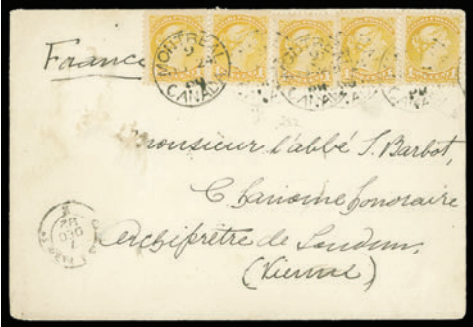 France
MONTREAL
CANADA
Monsieur l'abbé S. Barbot,
Chanoine honoraire
Archiprêtre de Loudun,
(Vienne)